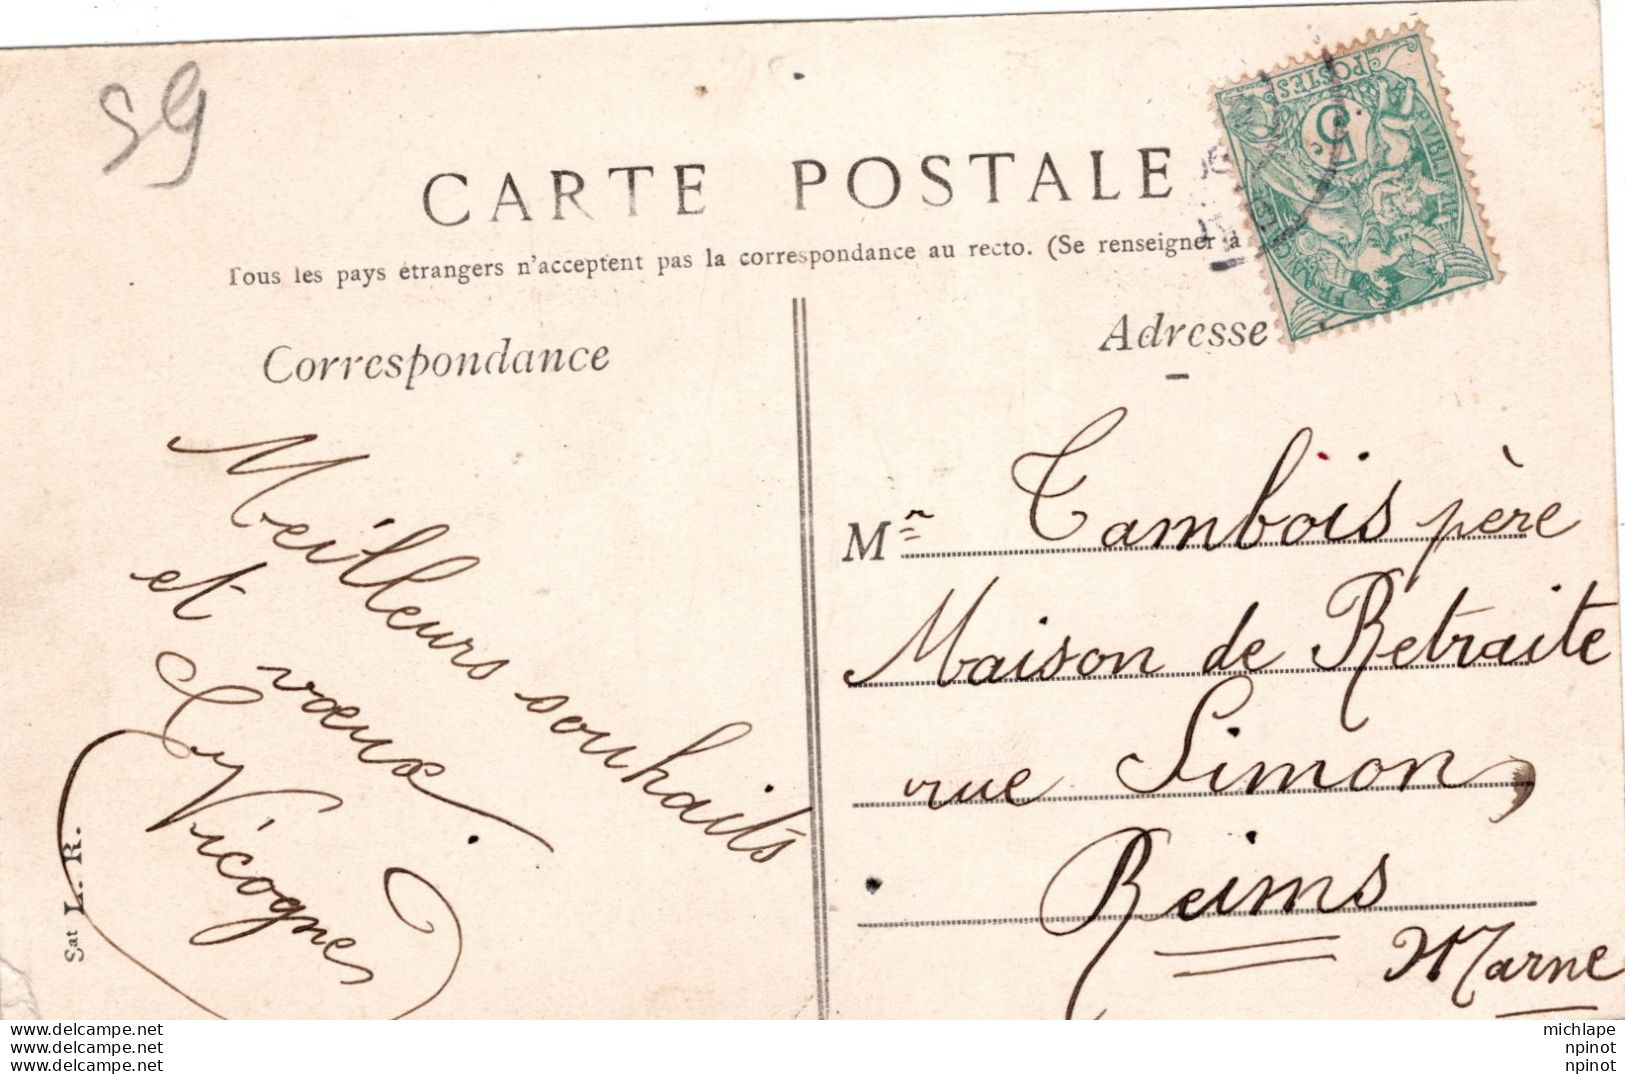 59
CARTE POSTALE
Tous les pays étrangers n'acceptent pas la correspondance au recto. (Se renseigner à
Correspondance
Meilleurs souhaits
et voeux.
Vicognes
Sat L. R.
POSTES
5
Adresse
Mr Tambois père
Maison de Retraite
rue Simon,
Reims
Marne
www.delcampe.net
www.delcampe.net
www.delcampe.net
michlape
npinot
npinot